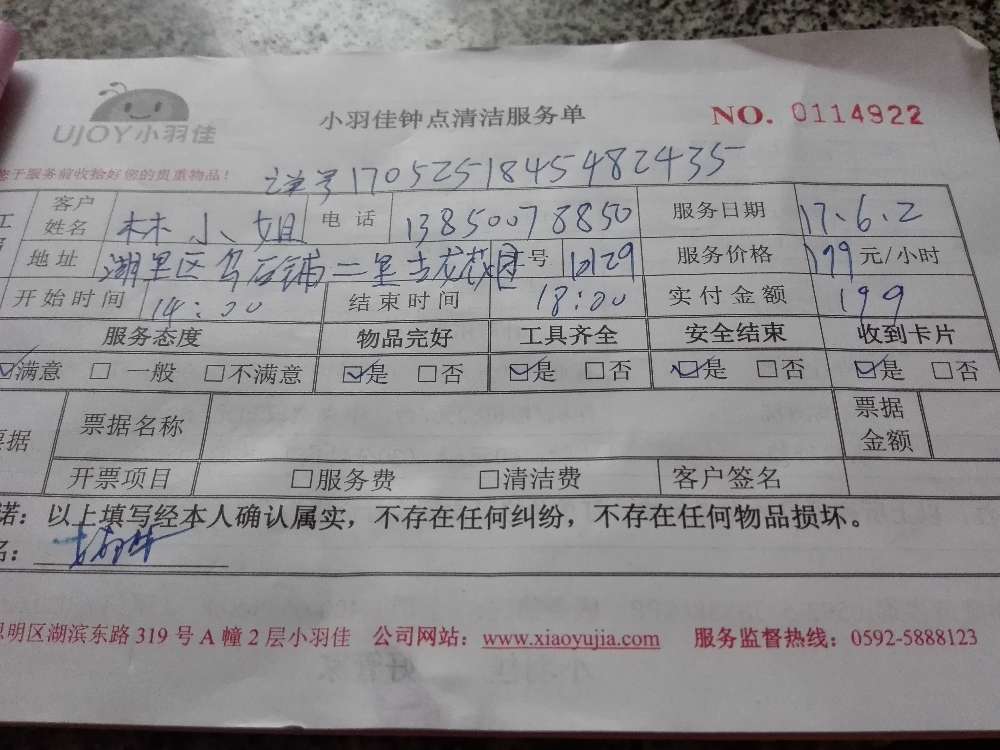 UJOY小羽佳
小羽佳钟点清洁服务单
NO. 0114922
于服务前收拾好您的贵重物品！
170525184545482435
客户姓名 林小姐 电话 13850078850 服务日期 17.6.2
地址 湖里区乌石铺二里 号 服务价格 199 元/小时
开始时间 14:00 结束时间 18:00 实付金额 199
服务态度 物品完好 工具齐全 安全结束 收到卡片
☑满意 □一般 □不满意 ☑是 □否 ☑是 □否 ☑是 □否 ☑是 □否
票据名称 票据金额
开票项目 □服务费 □清洁费 客户签名
诺：以上填写经本人确认属实，不存在任何纠纷，不存在任何物品损坏。
名：
思明区湖滨东路 319 号 A 幢 2 层小羽佳 公司网站：www.xiaoyujia.com 服务监督热线：0592-5888123